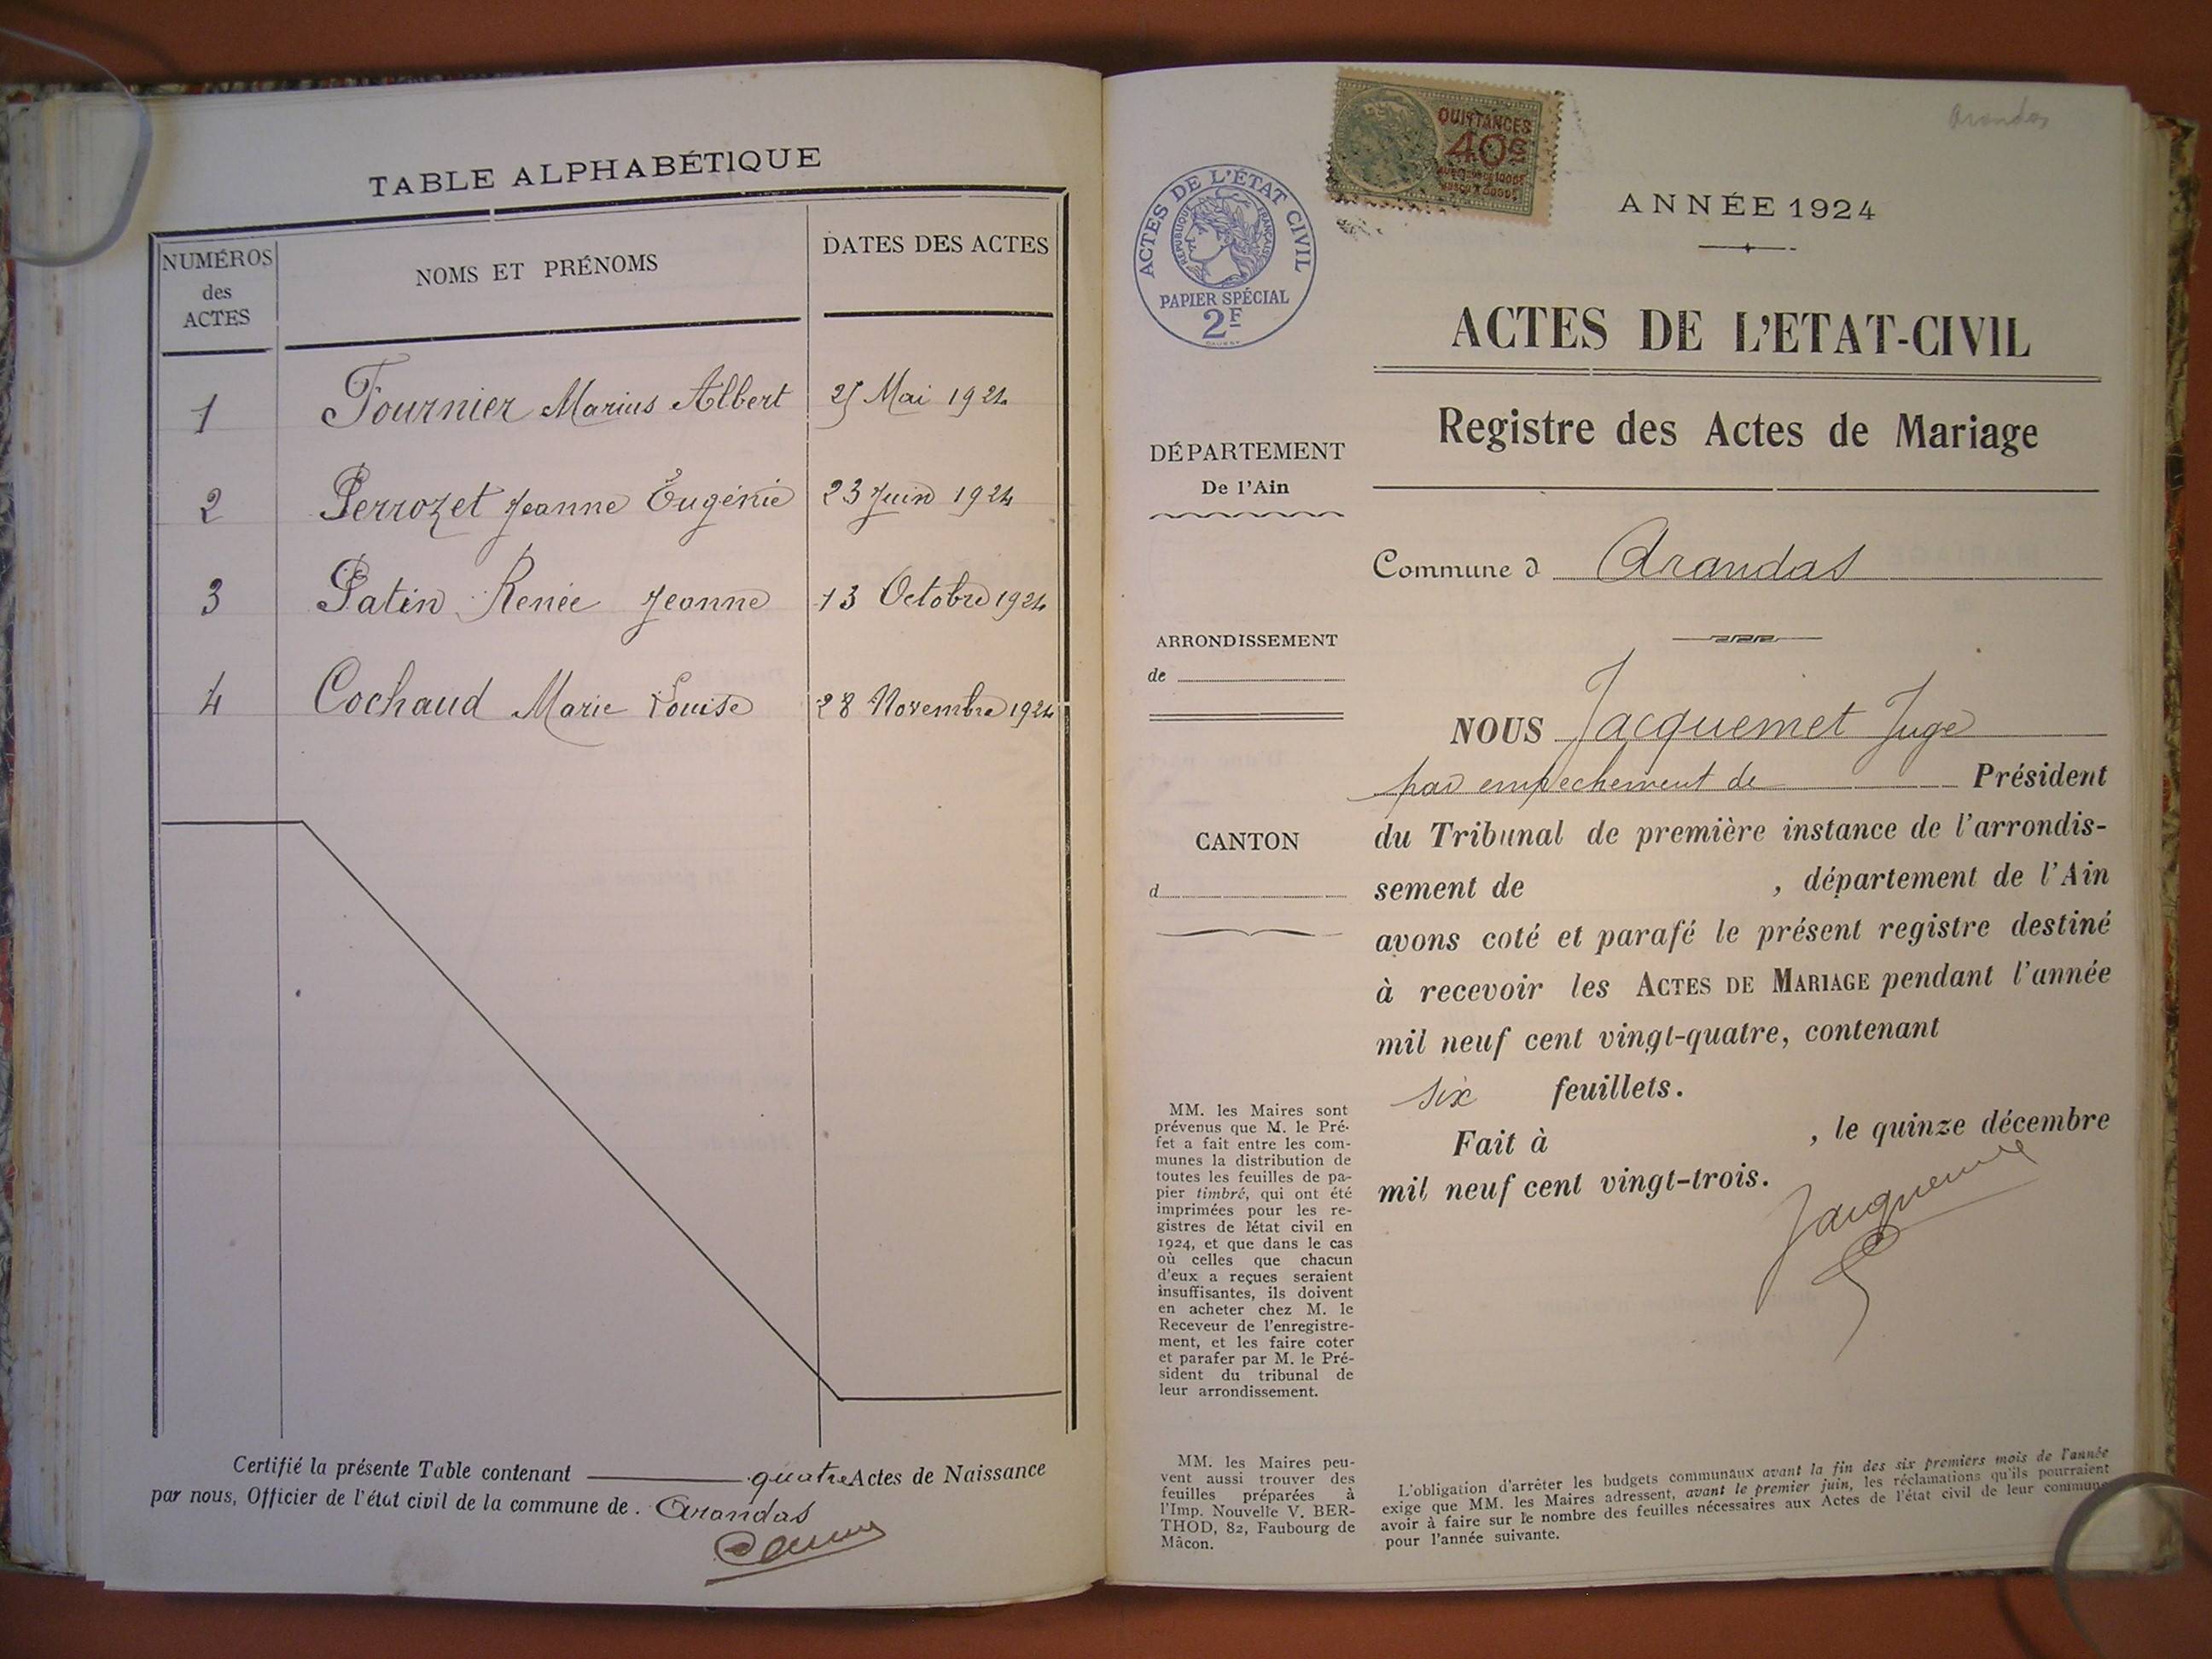 TABLE ALPHABÉTIQUE
NUMÉROS
des
ACTES
NOMS ET PRÉNOMS
DATES DES ACTES
1 Fournier Marius Albert 25 Mai 1924
2 Perrozet Jeanne Eugénie 23 Juin 1924
3 Patin Renée Jeanne 13 Octobre 1924
4 Cochaud Marie Louise 28 Novembre 1924
Certifié la présente Table contenant quatre Actes de Naissance
par nous, Officier de l'état civil de la commune de Arandas
Arandas
QUITTANCES
40c
ACTES DE L'ÉTAT CIVIL
RÉPUBLIQUE FRANÇAISE
PAPIER SPÉCIAL
2F
ANNÉE 1924
ACTES DE L'ETAT-CIVIL
Registre des Actes de Mariage
DÉPARTEMENT
De l'Ain
Commune d Arandas
ARRONDISSEMENT
de
CANTON
d
NOUS Jacquemet Juge
par empechement de Président
du Tribunal de première instance de l'arrondis-
sement de , département de l'Ain
avons coté et parafé le présent registre destiné
à recevoir les ACTES DE MARIAGE pendant l'année
mil neuf cent vingt-quatre, contenant
six feuillets.
Fait à , le quinze décembre
mil neuf cent vingt-trois.
Jacquemet
MM. les Maires sont
prévenus que M. le Pré-
fet a fait entre les com-
munes la distribution de
toutes les feuilles de pa-
pier timbré, qui ont été
imprimées pour les re-
gistres de l'état civil en
1924, et que dans le cas
où celles que chacun
d'eux a reçues seraient
insuffisantes, ils doivent
en acheter chez M. le
Receveur de l'enregistre-
ment, et les faire coter
et parafer par M. le Pré-
sident du tribunal de
leur arrondissement.
MM. les Maires peu-
vent aussi trouver des
feuilles préparées à
l'Imp. Nouvelle V. BER-
THOD, 82, Faubourg de
Mâcon.
L'obligation d'arrêter les budgets communaux avant la fin des six premiers mois de l'année
exige que MM. les Maires adressent, avant le premier juin, les réclamations qu'ils pourraient
avoir à faire sur le nombre des feuilles nécessaires aux Actes de l'état civil de leur commune
pour l'année suivante.